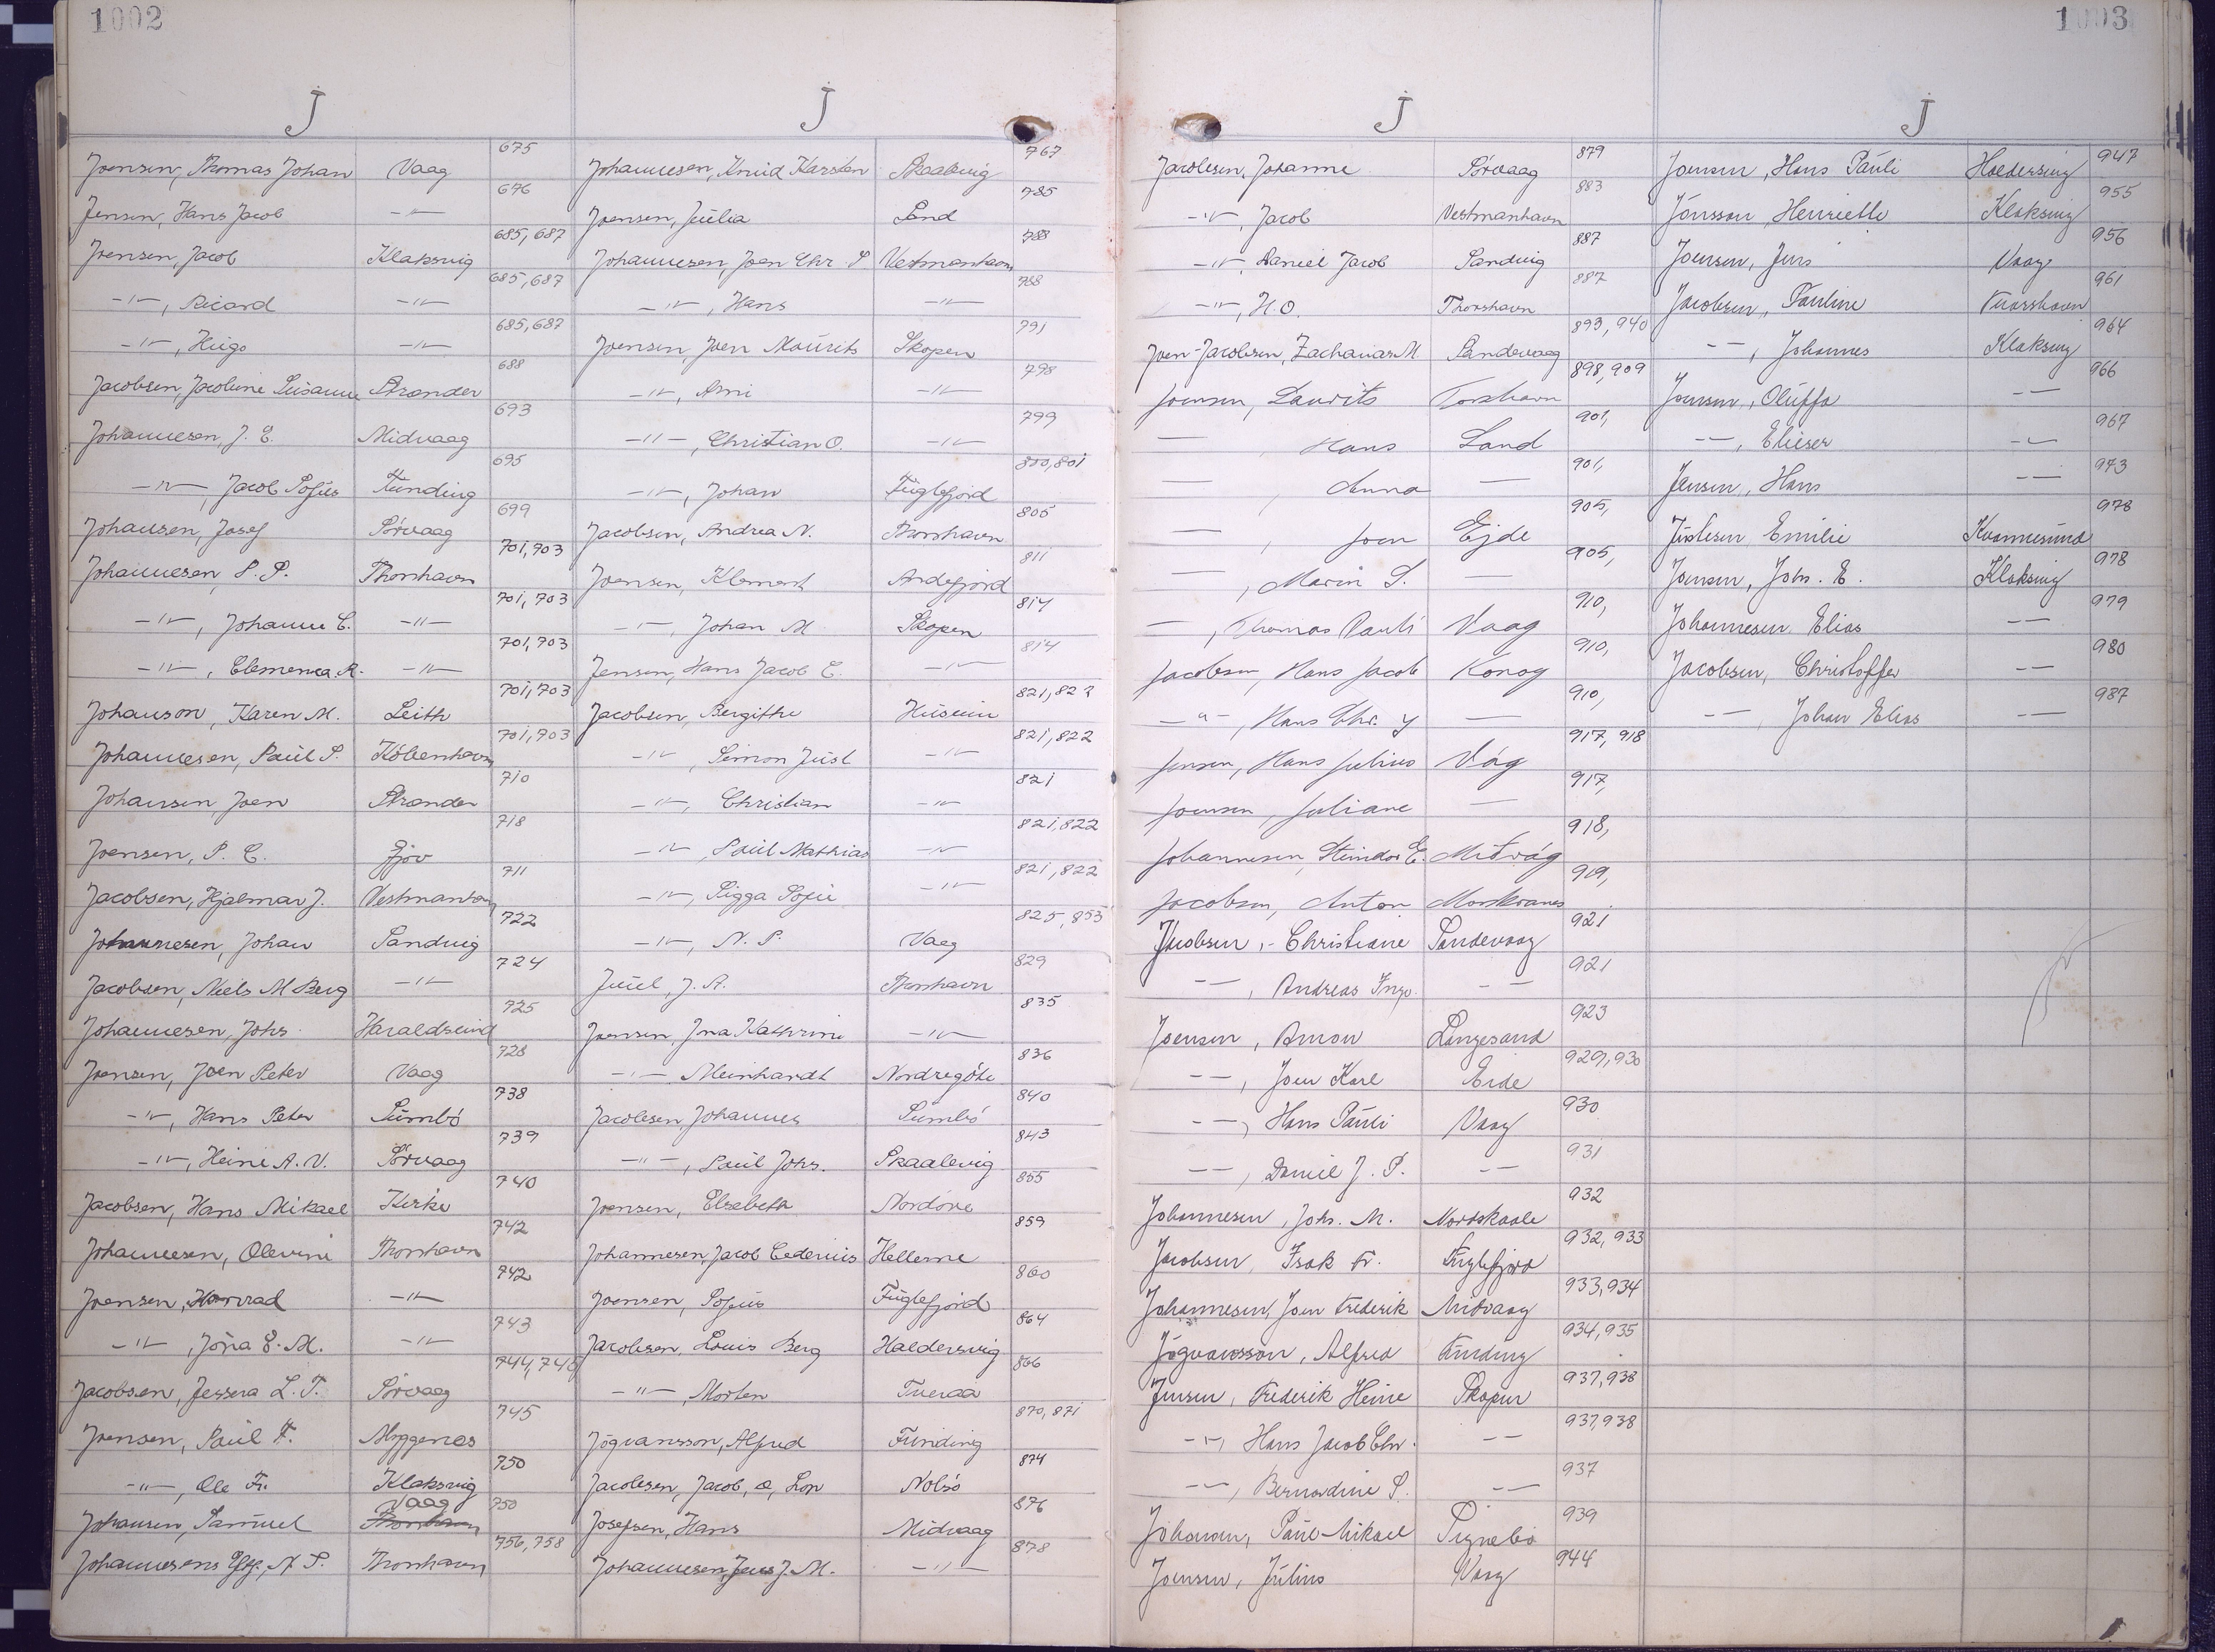 1002
J
Joensen, Thomas Johan Vaag 675
Jensen, Hans Jacob -"- 676
Joensen, Jacob Klaksvig 685, 687
-"-, Ricard -"- 685, 687
-"-, Hugo -"- 685, 687
Jacobsen, Jacobine Susanne Strander 688
Johannesen, J. E. Midvaag 693
-"-, Jacob Sofus Funding 695
Johansen, Josef Sörvaag 699
Johannesen, S. P. Thorshavn 701, 703
-"-, Johanne C. -"- 701, 703
-"-, Clemenca A. -"- 701, 703
Johanson, Karen M. Leith 701, 703
Johannesen, Paul P. Köbenhavn 701, 703
Johansen, Joen Strander 710
Joensen, P. C. Gjov 718
Jacobsen, Hjalmar J. Vestmanhavn 711
Johannesen, Johan Sandvig 722
Jacobsen, Niels M Berg -"- 724
Johannesen, Johs. Haraldsund 725
Joensen, Joen Peter Vaag 728
-"-, Hans Peter Sumbö 738
-"-, Heine A. V. Sörvaag 739
Jacobsen, Hans Mikael Kirke 740
Johannesen, Olevine Thorshavn 742
Joensen, Konrad -"- 742
-"-, Jóna E. M. -"- 743
Jacobsen, Jessera L. T. Sörvaag 744, 748
Joensen, Paul F. Myggenæs 745
-"-, Ole Fr. Klaksvig 750
Johansen, Samuel Vaag Thorshavn 750
Johannesens Eftf., N. P. Thorshavn 756, 758
J
Johannesen, Knud Karsten Skaalevig 767
Joensen, Julia Sand 785
Johannesen, Joen Chr. P Vestmanhavn 788
-"-, Hans -"- 788
Joensen, Joen Maurits Skopen 791
-"-, Arni -"- 798
-"-, Christian O. -"- 799
-"-, Johan Fuglefjord 800, 801
Jacobsen, Andrea N. Thorshavn 805
Joensen, Klement Andefjord 811
-"-, Johan M. Skopen 814
Jensen, Hans Jacob C. -"- 814
Jacobsen, Bergithe Húsum 821, 822
-"-, Simon Just -"- 821, 822
-"-, Christian -"- 821
-"-, Poul Mathias -"- 821, 822
-"-, Sigga Sofie -"- 821, 822
-"-, N. P. Vaag 825, 853
Juul, J. A. Thorshavn 829
Joensen, Ina Kathrine -"- 835
-"- Meinhardt Nordregöte 836
Jacobsen, Johannes Sumbö 840
-"-, Poul Johs. Skaalevig 843
Joensen, Elsebeth Nordöre 855
Johannesen, Jacob Cedenius Hellerne 859
Joensen, Sofus Fuglefjord 860
Jacobsen, Louis Berg Haldersvig 864
-"-, Morten Tveraa 866
Jógvansson, Alfred Funding 870, 871
Jacobsen, Jacob, & Son Nolsö 874
Josefsen, Hans Midvaag 876
Johannesen, Jens J. M. -"- 878
1003
J
Jacobsen, Johanne Sörvaag 879
-"-, Jacob Vestmanhavn 883
-"-, Daniel Jacob Sandvig 887
-"-, H. O. Thorshavn 887
Joen-Jacobsen, Zacharias M Sandevaag 893, 940
Joensen, Laurits Torshavn 898, 909
—, Hans Sand 901,
—, Anna — 901,
—, Joen Ejde 905,
—, Marin S. — 905,
—, Thomas Pauli Vaag 910,
Jacobsen, Hans Jacob Konog 910,
-"-, Hans Chr. J — 910,
Jensen, Hans Julius Vág 917, 918
Joensen, Juliane — 917,
Johannesen, Steindor E. Miðvág 918,
Jacobsen, Anton Morskranes 919,
Jacobsen, Christiane Sandevaag 921
— —, Andreas Ingv. — — 921
Joensen, Armon Langesand 923
— —, Joen Karl Eide 929, 930
— —, Hans Pauli Vaag 930
— —, Daniel J. P. — — 931
Johannesen, Johs. M. Nordskaale 932
Jacobsen, Isak Fr. Fuglefjord 932, 933
Johannesen, Joen Frederik Midvaag 933, 934
Jógvansson, Alfred Funding 934, 935
Jensen, Frederik Heine Skopun 937, 938
-"-, Hans Jacob Chr. — — 937, 938
— —, Bernardine S. — — 937
Johansen, Paul Mikael Signebö 939
Joensen, Julius Vaag 944
J
Joensen, Hans Pauli Haldersvig 947
Jónsson, Henriette Klaksvig 955
Joensen, Jens Vaag 956
Jacobsen, Pauline Thorshavn 961
— —, Johannes Klaksvig 964
Joensen, Oluffa — — 966
— —, Elieser — — 967
Jensen, Hans — — 973
Justesen Emilie Kvannesund 978
Joensen, Johs. E. Klaksvig 978
Johannesen, Elias — — 979
Jacobsen, Christoffer — — 980
— —, Johan Elias — — 987